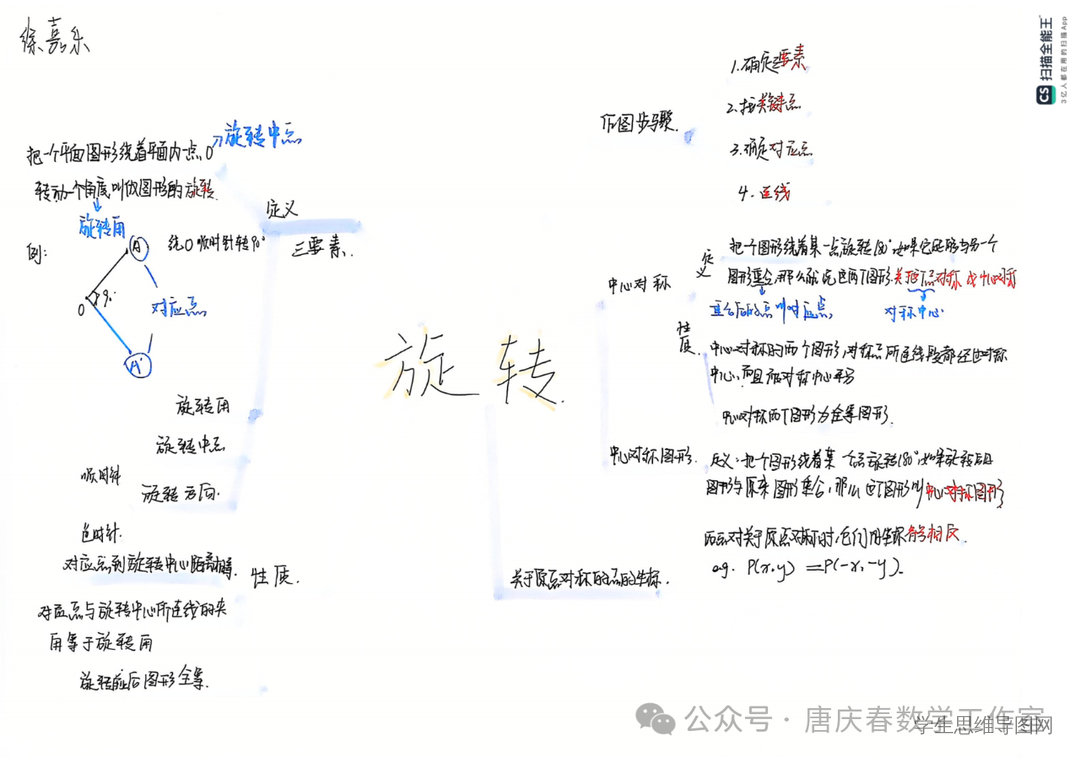 徐嘉乐
CS 扫描全能王
3亿人都在用的扫描App
把一个平面图形绕着平面内一点O
旋转中点
转动一个角度叫做图形的旋转
旋转角
例:
A
绕O顺时针转90°
O
90°
对应点
A'
定义
三要素.
旋转角
旋转中点
顺时针
旋转方向.
时针.
对应点到旋转中心距离相等.
性质.
对应点与旋转中心所连线的夹
角等于旋转角
旋转前后图形全等.
旋转
作图步骤.
1.确定三要素
2.找关键点
3.确定对应点
4.连线
中心对称
定义
把一个图形绕着某一点旋转180°,如果它能够与另一个
图形重合,那么就说这两个图形关于这个点对称或中心对称
重合后的点叫对应点
对称中心.
性质.
中心对称的两个图形,对称点所连线段都经过对称
中心,而且被对称中心平分
中心对称两个图形为全等图形.
中心对称图形.
定义:把个图形绕着某一个点旋转180°,如果旋转后的
图形与原来图形重合,那么这个图形叫中心对称图形
关于原点对称的点的坐标.
两点对关于原点对称时,它们的坐标符号相反.
eg. P(x,y) =P(-x,-y).
公众号·唐庆春数学工作室
学生思维导图网